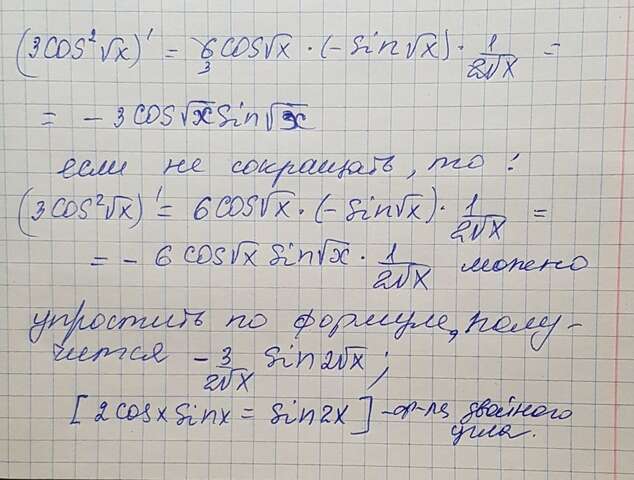 (3cos²√x)' = 6cos√x · (-sin√x) · 1/2√x =
3
= - 3cos√x sin√x
если не сокращать, то:
(3cos²√x)' = 6cos√x · (-sin√x) · 1/2√x =
= - 6 cos√x sin√x · 1/2√x можно
упростить по формуле, полу-
чится - 3/2√x sin2√x ;
[2cosx sinx = sin2x] -ф-ла двойного
угла.